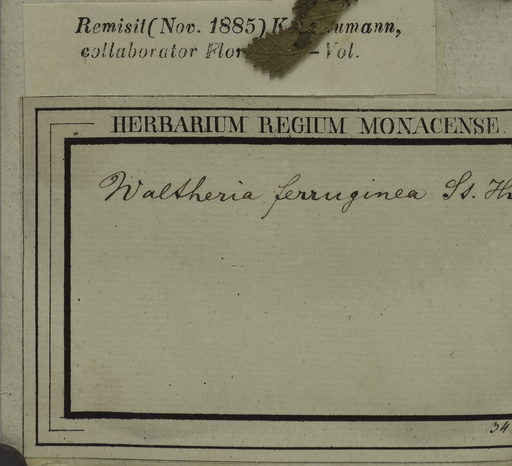 Remisit (Nov. 1885) K. umann,
collaborator Flor – Vol.
HERBARIUM REGIUM MONACENSE
Waltheria ferruginea St. H
34